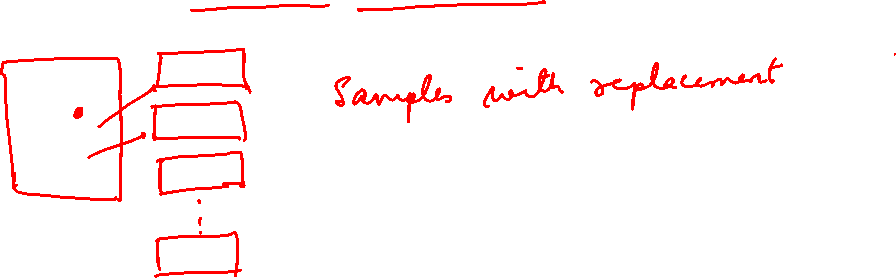 Samples with replacement